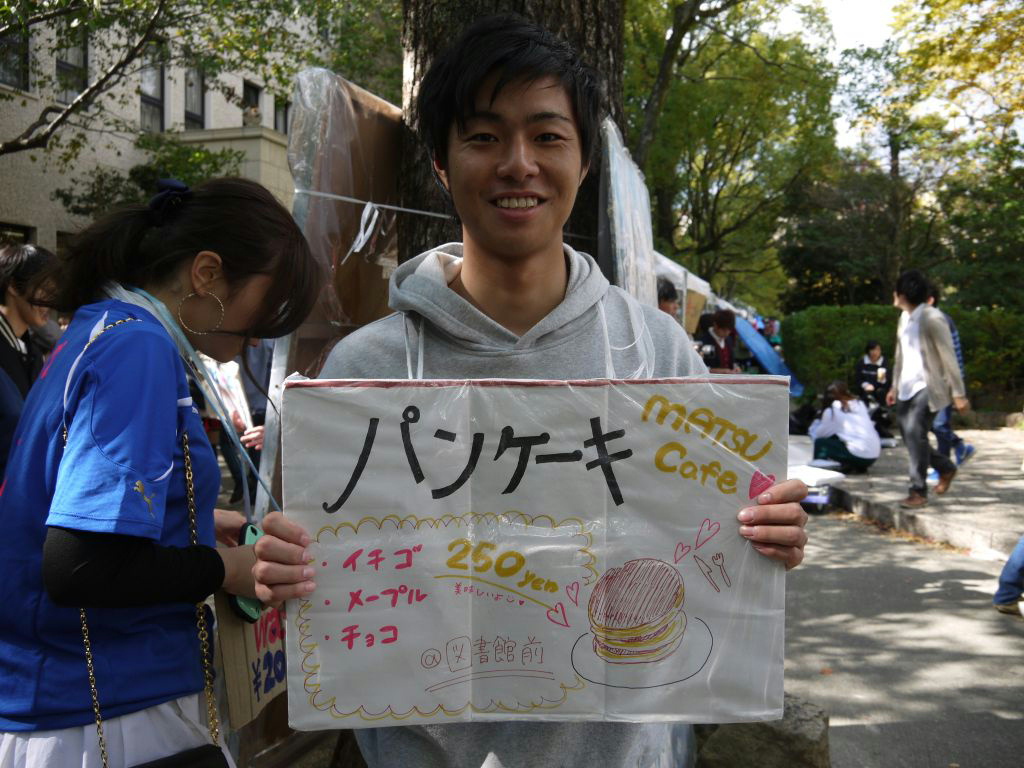 パンケーキ
MATSU
Cafe
・イチゴ
・メープル
・チョコ
250yen
美味しいよ♡
@図書館前
¥20